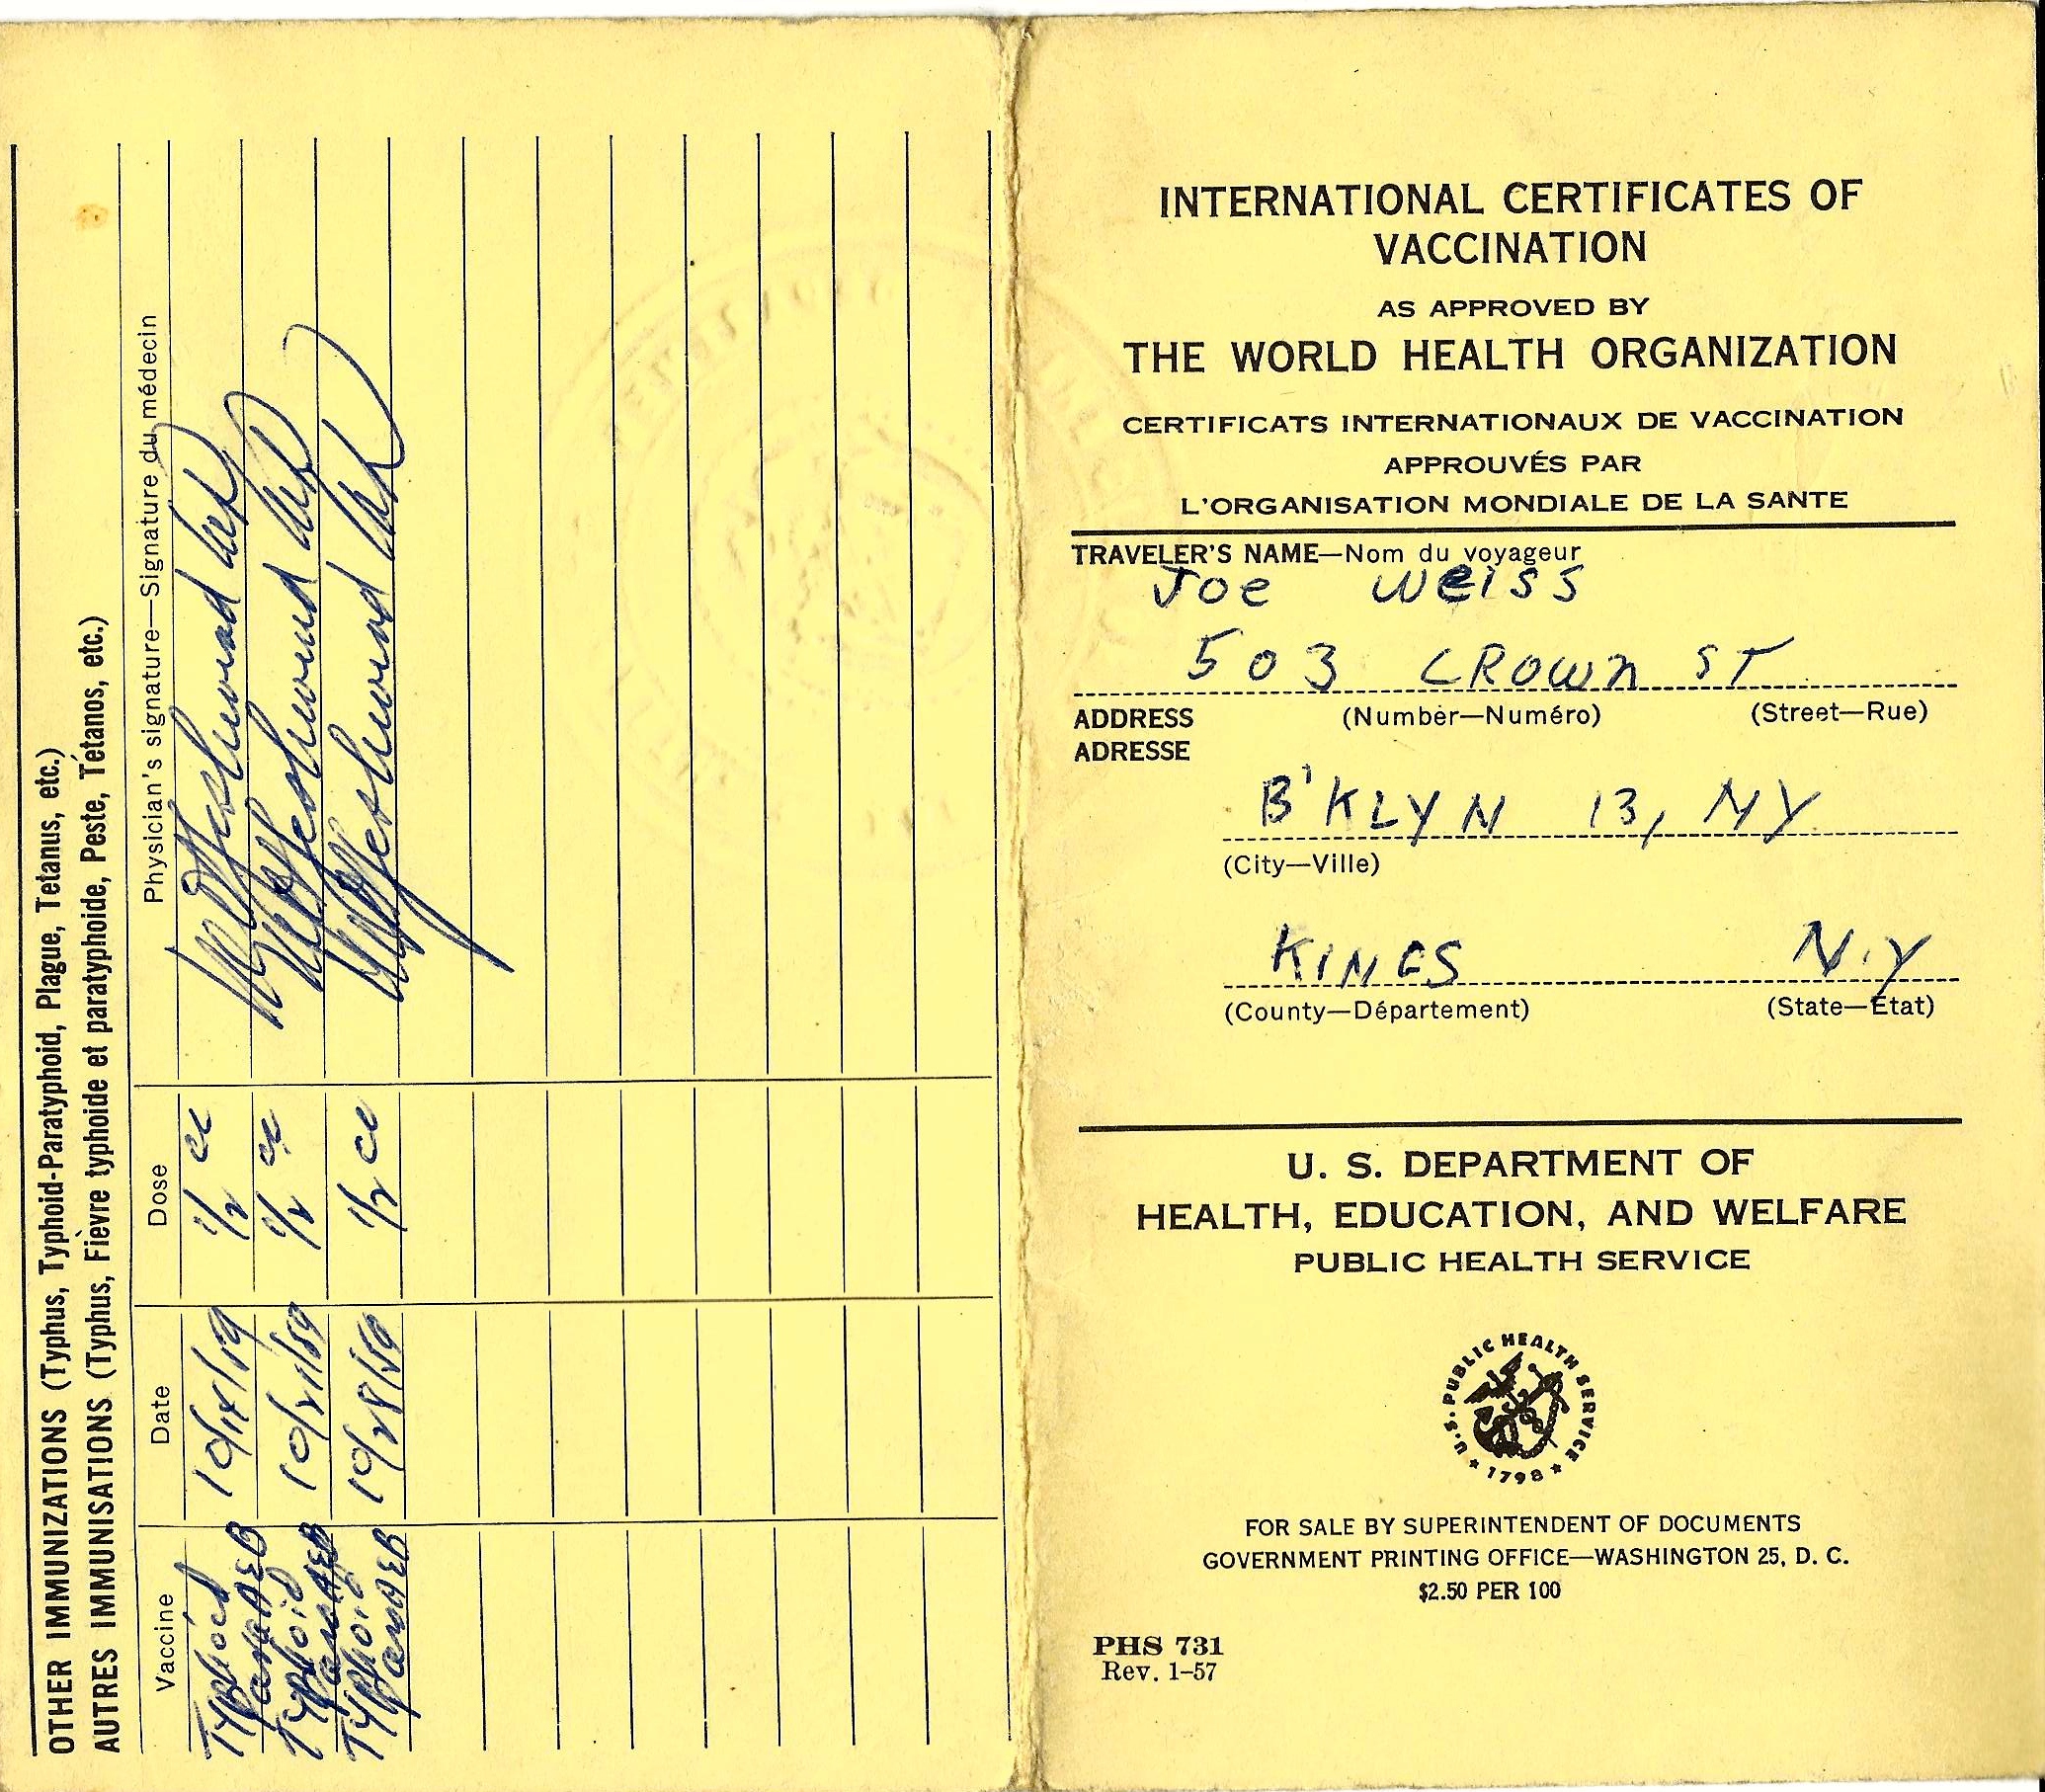 OTHER IMMUNIZATIONS (Typhus, Typhoid-Paratyphoid, Plague, Tetanus, etc.)
AUTRES IMMUNISATIONS (Typhus, Fièvre typhoide et paratyphoide, Peste, Tétanos, etc.)
Vaccine Date Dose Physician's signature—Signature du médecin
Typhoid 10/14/59 1/2 cc
Para A&B
Typhoid 10/21/59 1/2 cc
Para A&B
Typhoid 10/28/59 1/2 cc
Para A&B
INTERNATIONAL CERTIFICATES OF
VACCINATION
AS APPROVED BY
THE WORLD HEALTH ORGANIZATION
CERTIFICATS INTERNATIONAUX DE VACCINATION
APPROUVÉS PAR
L'ORGANISATION MONDIALE DE LA SANTE
TRAVELER'S NAME—Nom du voyageur
Joe Weiss
503 CROWN ST
ADDRESS (Number—Numéro) (Street—Rue)
ADRESSE
B'KLYN 13, NY
(City—Ville)
KINGS N.Y
(County—Département) (State—Etat)
U. S. DEPARTMENT OF
HEALTH, EDUCATION, AND WELFARE
PUBLIC HEALTH SERVICE
U.S. PUBLIC HEALTH SERVICE
1798
FOR SALE BY SUPERINTENDENT OF DOCUMENTS
GOVERNMENT PRINTING OFFICE—WASHINGTON 25, D. C.
$2.50 PER 100
PHS 731
Rev. 1–57